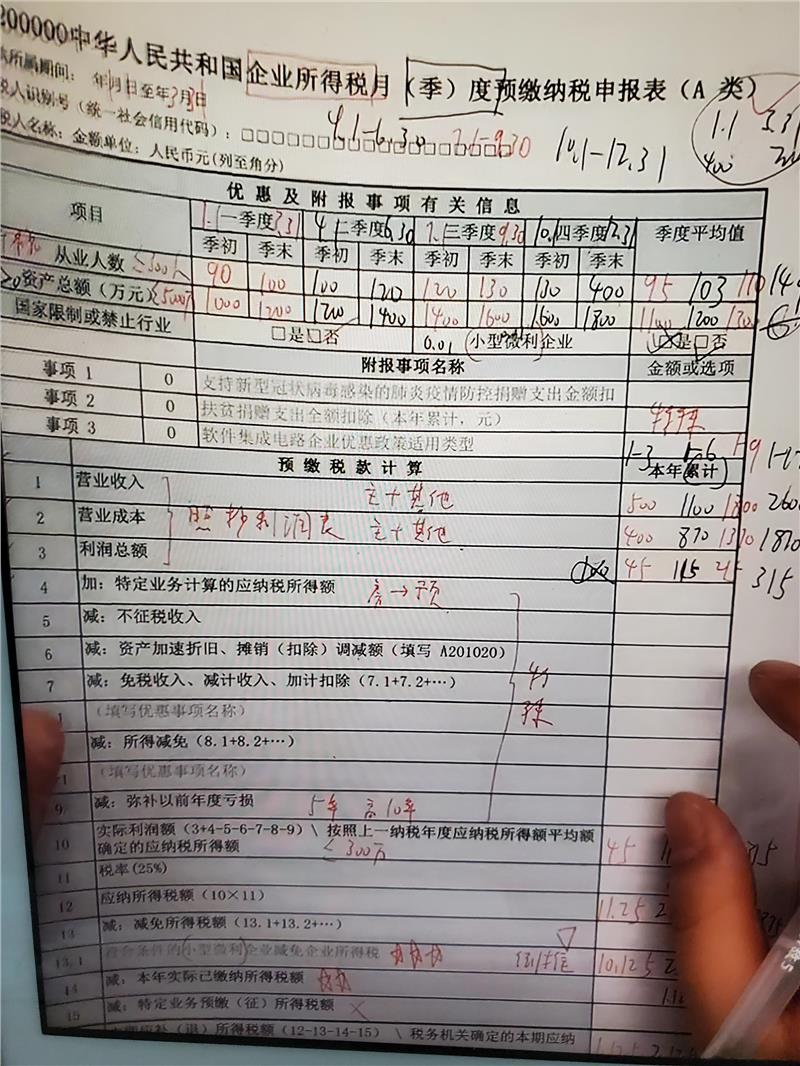 200000中华人民共和国企业所得税月（季）度预缴纳税申报表（A 类）
款所属期间： 年1月1日至年3月31日
税人识别号（统一社会信用代码）：□□□□□□□□□□□□□□□□□□ 4.1-6.30 7.1-9.30 10.1-12.31
税人名称：金额单位：人民币元(列至角分)
1.1 3.31
400
优 惠 及 附 报 事 项 有 关 信 息
项目 1.1一季度3.31 4.1二季度6.30 7.1三季度9.30 10.1四季度12.31 季度平均值
季初 季末 季初 季末 季初 季末 季初 季末
从业人数 ≤300人 90 100 100 120 120 130 130 400 95 103 110
资产总额（万元）≤5000万 1000 1200 1200 1400 1400 1600 1600 1800 1100 1200 1300
国家限制或禁止行业 □是□否 0.01 小型微利企业 □是□否
附报事项名称 金额或选项
事项 1 0 支持新型冠状病毒感染的肺炎疫情防控捐赠支出全额扣
事项 2 0 扶贫捐赠支出全额扣除（本年累计，元）
事项 3 0 软件集成电路企业优惠政策适用类型
1-3 1-6 1-9 1-12
预 缴 税 款 计 算 本年累计
1 营业收入 主+其他 500 1100 1800 2600
2 营业成本 照抄利润表 主+其他 400 870 1370 1870
3 利润总额 45 115 215 315
4 加：特定业务计算的应纳税所得额 房→预
5 减：不征税收入
6 减：资产加速折旧、摊销（扣除）调减额（填写 A201020）
7 减：免税收入、减计收入、加计扣除（7.1+7.2+…）
1 （填写优惠事项名称）
减：所得减免（8.1+8.2+…）
1 （填写优惠事项名称）
9 减：弥补以前年度亏损 5年 高10年
10 实际利润额（3+4-5-6-7-8-9）\ 按照上一纳税年度应纳税所得额平均额
确定的应纳税所得额 ≤300万 45
11 税率(25%)
12 应纳所得税额（10×11） 11.25
13 减：减免所得税额（13.1+13.2+…）
13.1 符合条件的小型微利企业减免企业所得税 10.125
14 减：本年实际已缴纳所得税额
15 减：特定业务预缴（征）所得税额
本期应补（退）所得税额（12-13-14-15）\ 税务机关确定的本期应纳 1.125